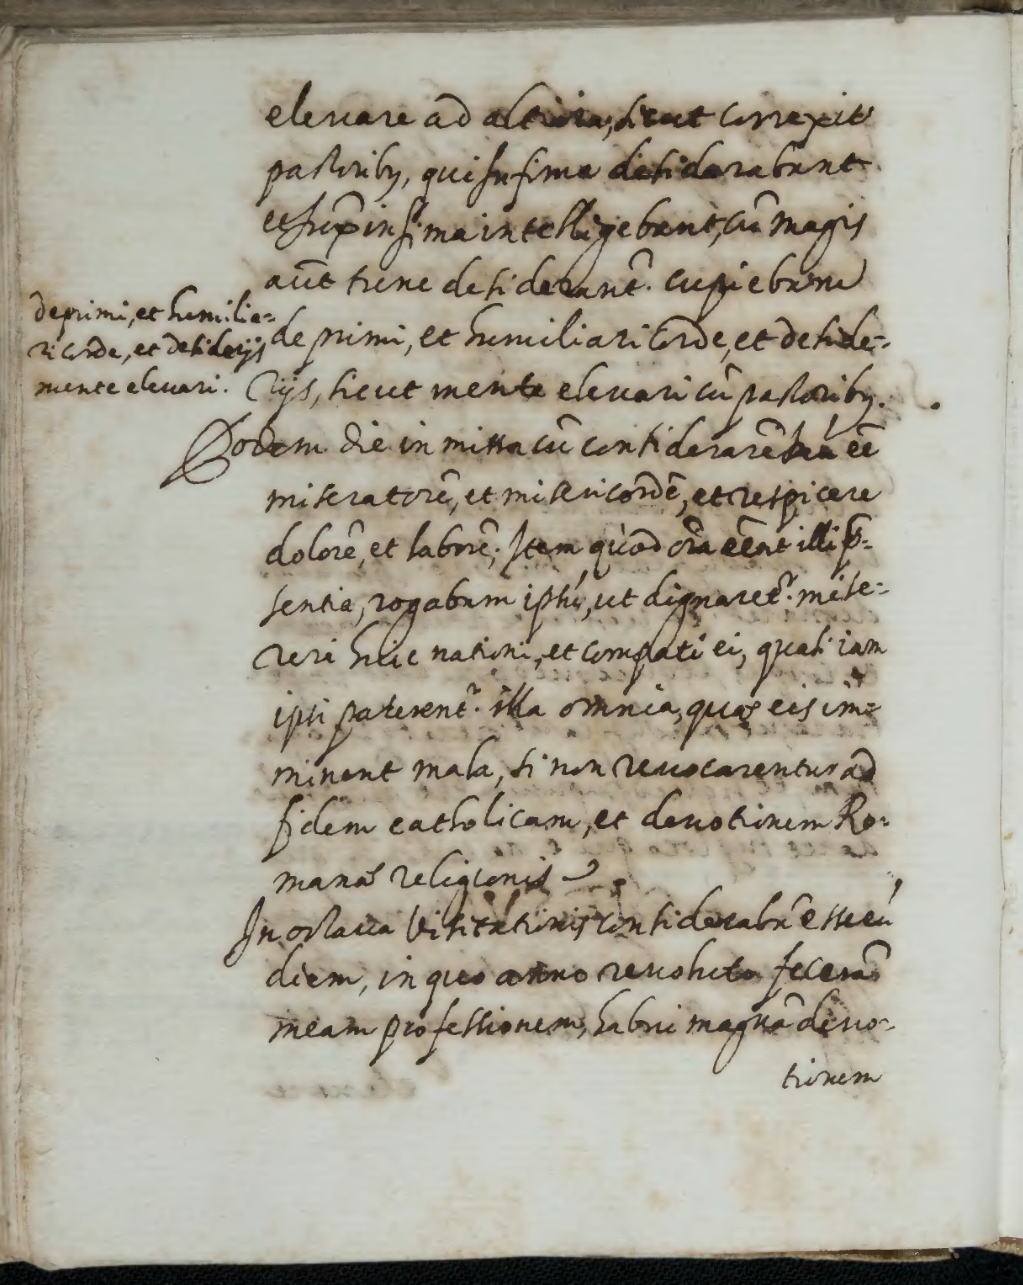 elevare ad altiora, sicut correxit
pastoribꝰ, qui infima desiderabant
et sup̄ infima intelligebant, cū magis
aūt tunc desiderant̃. cupiebam
deprimi, et humilia-
ri corde, et desiderijs
mente elevari.
deprimi, et humiliari corde, et deside-
rijs, sicut mente elevari cū pastoribꝰ.
Eodem die in missa cū considerarē eē
miseratorē, et misericordē, et respicere
dolorē, et laborē. Item quòd oīa eēnt illi p̄-
sentia, rogabam ipsū, ut dignaret̃. mise-
reri huic nationi, et compati ei, quasi iam
ipsi paterent̃. illa omnia, quae eis im-
minent mala, si non revocarentur ad
fidem catholicam, et devotionem Ro-
manae religionis
In octava Visitationis considerabā esse eū
diem, in quo anno revoluto feceram
meam professionem, habui magnā devo-
tionem